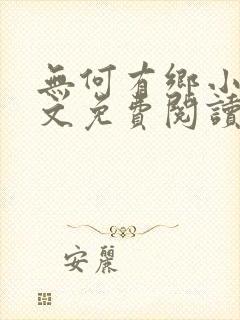 無何有鄉小
文免費閱讀
安麗